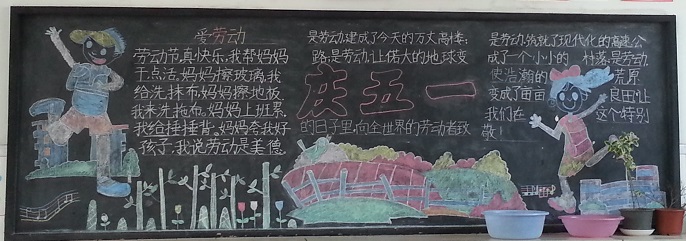 爱劳动
劳动节真快乐,我帮妈妈
干点活,妈妈擦玻璃,我
给洗抹布,妈妈擦地板,
我来洗拖布。妈妈上班累,
我给捶捶背。妈妈夸我好
孩子,我说劳动是美德。
是劳动,建成了今天的万丈高楼;
路;是劳动,让偌大的地球变
庆五一
的日子里,向全世界的劳动者致
是劳动,筑就了现代化的高速公
成了一个小小的 村落;是劳动,
使浩瀚的 荒原
变成了亩亩 良田;让
我们在 这个特别
敬!